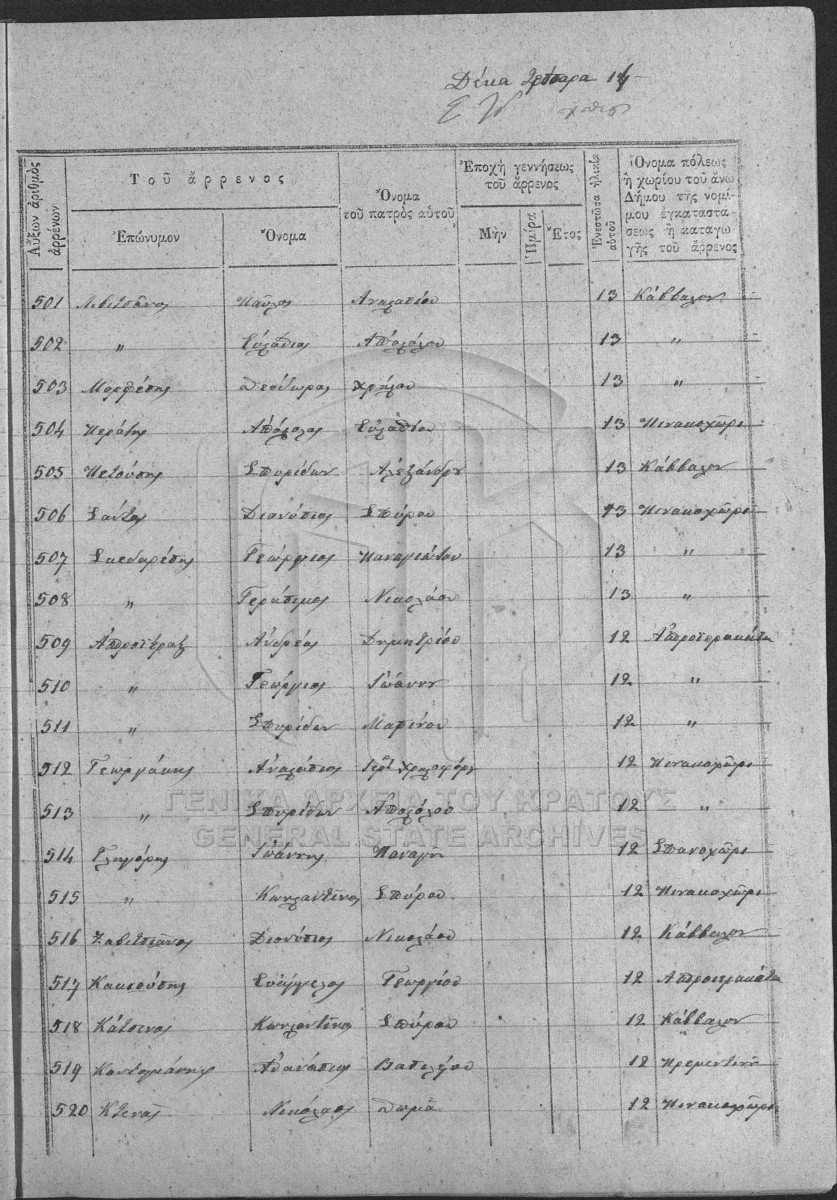 Δέκα τέσσαρα 14
Αὔξων ἀριθμὸς ἀρρένων
Τοῦ ἄρρενος
Ἐπώνυμον
Ὄνομα
Ὄνομα
τοῦ πατρὸς αὐτοῦ
Ἐποχὴ γεννήσεως
τοῦ ἄρρενος
Μὴν
Ἡμέρα
Ἔτος
Ἐνεστῶσα ἡλικία αὐτοῦ
Ὄνομα πόλεως
ἢ χωρίου τοῦ ἄνω
Δήμου τῆς νομί-
μου ἐγκαταστά
σεως ἢ καταγω
γῆς τοῦ ἄρρενος
501 Λιβιτσᾶνος Παῦλος Ἀναστασίου 13 Κάββαλον
502 " Εὐστάθιος Ἀποστόλου 13 "
503 Μορφέσης Θεόδωρος Χρήστου 13 "
504 Ἀπόστολος Εὐσταθίου 13 Πινακοχῶρι
505 Πετούσης Σπυρίδων Ἀλεξάνδρου 13 Κάββαλον
506 Σάντας Διονύσιος Σπύρου 13 Πινακοχῶρι
507 Σκεδαρέσης Γεώργιος Παναγιώτου 13 "
508 " Γεράσιμος Νικολάου 13 "
509 Ἀνδρέας Δημητρίου 12
510 " Γεώργιος Ἰωάννου 12 "
511 " Σπυρίδων Μαρίνου 12 "
512 Γεωργάκης Ἀναστάσιος 12 Πινακοχῶρι
513 " Σπυρίδων Ἀποστόλου 12 "
514 Γληγόρης Ἰωάννης Παναγῆ 12 Σπανοχῶρι
515 " Κωνσταντῖνος Σπύρου 12 Πινακοχῶρι
516 Ζαβιτσᾶνος Διονύσιος Νικολάου 12 Κάββαλον
517 Κακιούσης Εὐάγγελος Γεωργίου 12
518 Κάτσενος Κωνσταντῖνος Σπύρου 12 Κάββαλον
519 Κοντομίχης Ἀθανάσιος Βασιλείου 12
520 Κτενᾶς Νικόλαος Θωμᾶ 12 Πινακοχῶρι
ΓΕΝΙΚΑ ΑΡΧΕΙΑ ΤΟΥ ΚΡΑΤΟΥΣ
GENERAL STATE ARCHIVES